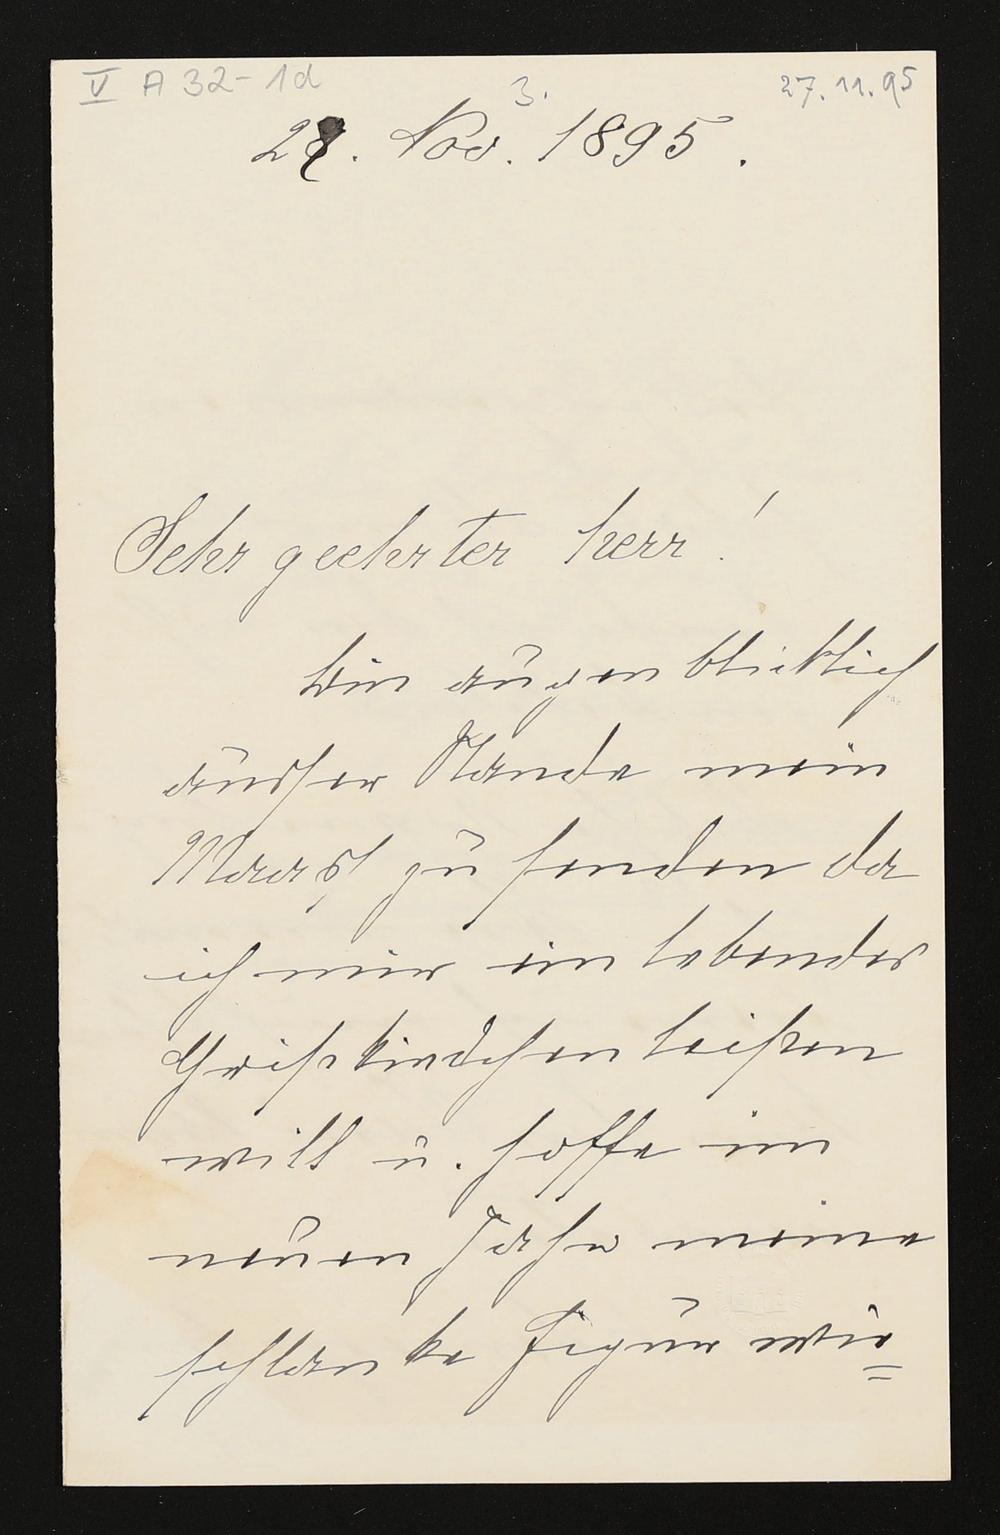 V A 32-1d
3.
27.11.95
27. Nov. 1895.
Sehr geehrter Herr!
bin augenblicklich
ausser Stande mein
Maaß zu senden da
ich mir ein lebendes
Christkindchen leisten
will u. hoffe im
neuen Jahr meine
schlanke Figur wie=